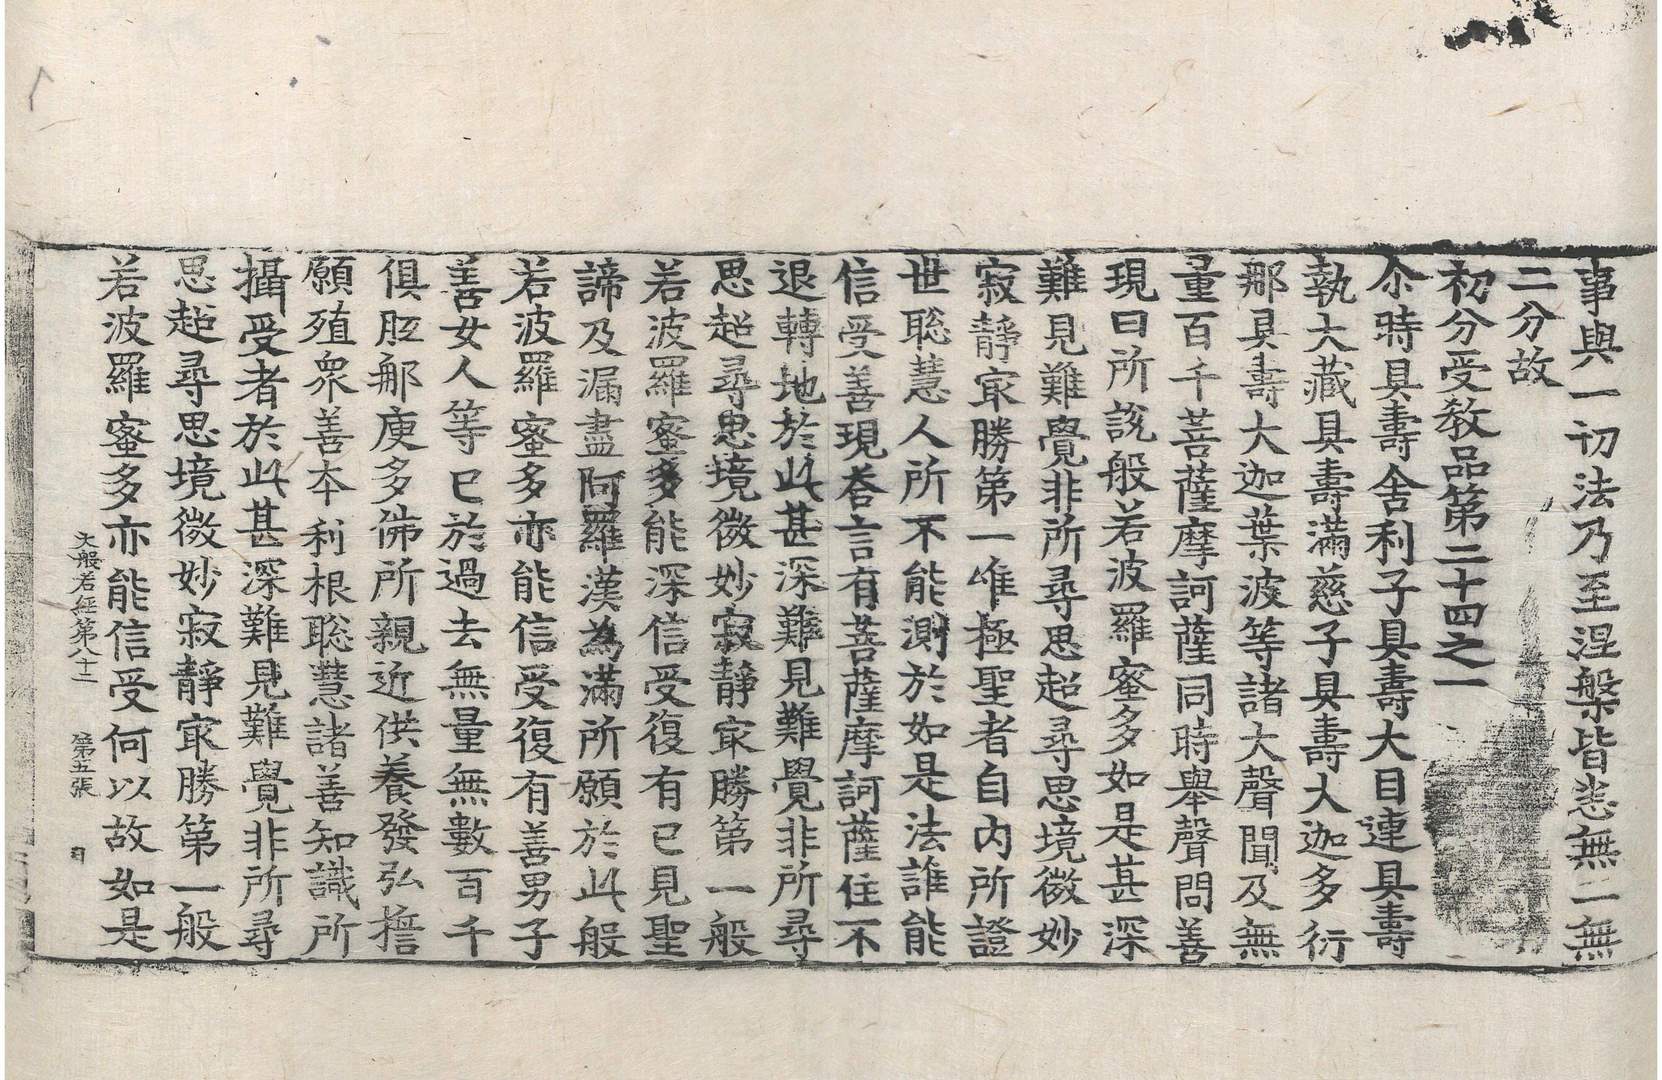 事與一切法乃至涅槃皆悉無二無
二分故
初分受教品第二十四之一
尒時具壽舍利子具壽大目連具壽
執大藏具壽滿慈子具壽大迦多衍
那具壽大迦葉波等諸大聲聞及無
量百千菩薩摩訶薩同時舉聲問善
現曰所說般若波羅蜜多如是甚深
難見難覺非所尋思超尋思境微妙
寂靜㝡勝第一唯極聖者自內所證
世聡慧人所不能測於如是法誰能
信受善現荅言有菩薩摩訶薩住不
退轉地於此甚深難見難覺非所尋
思超尋思境微妙寂靜㝡勝第一般
若波羅蜜多能深信受復有已見聖
諦及漏盡阿羅漢為滿所願於此般
若波羅蜜多亦能信受復有善男子
善女人等已於過去無量無數百千
俱胝那庾多佛所親近供養發弘誓
願殖衆善本利根聡慧諸善知識所
攝受者於此甚深難見難覺非所尋
思超尋思境微妙寂靜㝡勝第一般
若波羅蜜多亦能信受何以故如是
大般若經第八十二 第五張